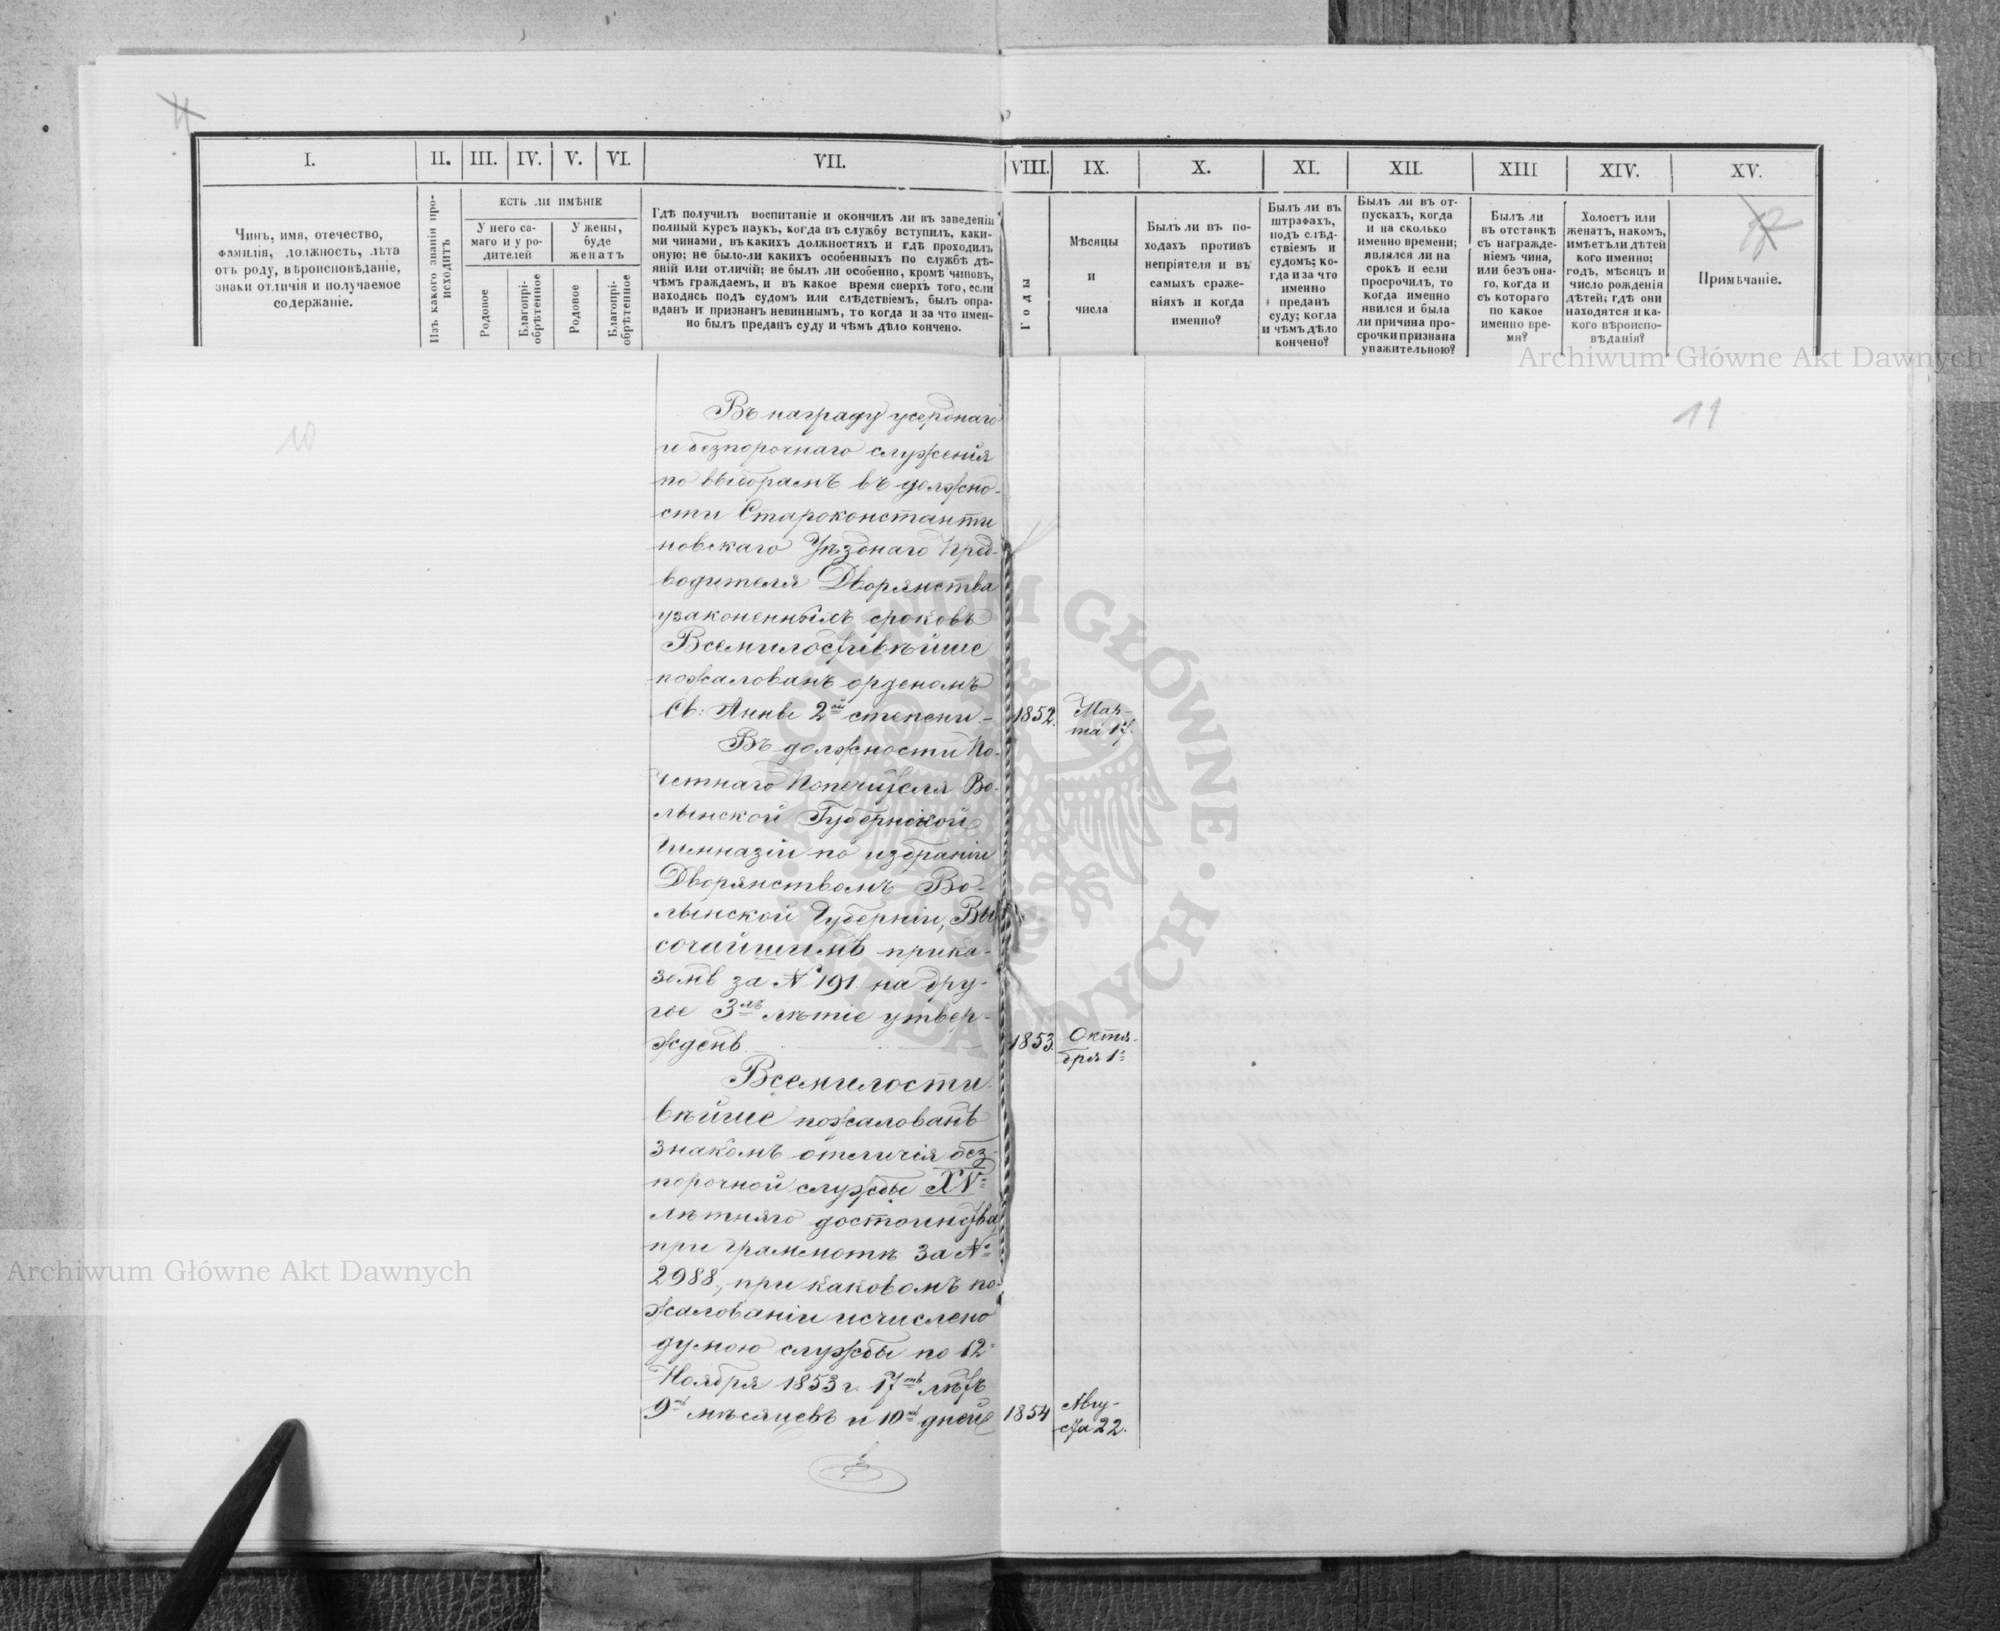 I.
II.
III.
IV.
V.
VI.
VII.
VIII.
IX.
X.
XI.
XII.
XIII
XIV.
XV.
Чинъ, имя, отечество,
фамилія, должность, лѣта
отъ роду, вѣроисповѣданіе,
знаки отличія и получаемое
содержаніе.
Изъ какого званія про-
исходитъ
ЕСТЬ ЛИ ИМѢНІЕ
У него са-
маго и у ро-
дителей
У жены,
буде
женатъ
Родовое
Благопрі-
обрѣтенное
Родовое
Благопрі-
обрѣтенное
Гдѣ получилъ воспитаніе и окончилъ ли въ заведеніи
полный курсъ наукъ, когда въ службу вступилъ, каки-
ми чинами, въ какихъ должностяхъ и гдѣ проходилъ
оную; не было-ли какихъ особенныхъ по службѣ дѣ-
яній или отличій; не былъ ли особенно, кромѣ чиновъ,
чѣмъ граждаемъ, и въ какое время сверхъ того, если
находясь подъ судомъ или слѣдствіемъ, былъ опра-
вданъ и признанъ невиннымъ, то когда и за что имен-
но былъ преданъ суду и чѣмъ дѣло кончено.
Годы
Мѣсяцы
и
числа
Былъ ли въ по-
ходахъ противъ
непріятеля и въ
самыхъ сраже-
ніяхъ и когда
именно?
Былъ ли въ
штрафахъ,
подъ слѣд-
ствіемъ и
судомъ; ко-
гда и за что
именно
преданъ
суду; когда
и чѣмъ дѣло
кончено?
Былъ ли въ от-
пускахъ, когда
и на сколько
именно времени;
являлся ли на
срокъ и если
просрочилъ, то
когда именно
явился и была
ли причина про-
срочки признана
уважительною?
Былъ ли
въ отставкѣ
съ награжде-
ніемъ чина,
или безъ она-
го, когда и
съ котораго
по какое
именно вре-
мя?
Холостъ или
женатъ, накомъ,
имѣетъ ли дѣтей
кого именно;
годъ, мѣсяцъ и
число рожденія
дѣтей; гдѣ они
находятся и ка-
кого вѣроиспо-
вѣданія?
Примѣчаніе.
10
11
Въ награду усерднаго
и безпорочнаго служенія
по выборамъ въ должно-
сти Староконстанти
новскаго Уѣзднаго Пред-
водителя Дворянства
узаконенныхъ сроковъ
Всемилостивѣйше
пожалованъ орденомъ
Св: Анны 2ой степени.– 1852. Мар-
та 17.
Въ должности По-
четнаго Попечителя Во-
лынской Губернской
Гимназіи по избранію
Дворянствомъ Во-
лынской Губерніи, Вы
сочайшимъ прика-
зомъ за № 191 на дру-
гое 3хъ лѣтіе утвер-
жденъ 1853. Октя-
бря 1.
Всемилости-
вѣйше пожалованъ
знакомъ отличія без-
порочной службы XV-
лѣтняго достоинства
при грамотѣ за №
2988, при каковомъ по-
жалованіи исчислено
думою службы по 12
Ноября 1853 г. 17ть лѣтъ
9ть мѣсяцевъ и 10ть дней 1854 Авгу-
ста 22.
Archiwum Główne Akt Dawnych
Archiwum Główne Akt Dawnych
ARCHIWUM GŁÓWNE AKT DAWNYCH